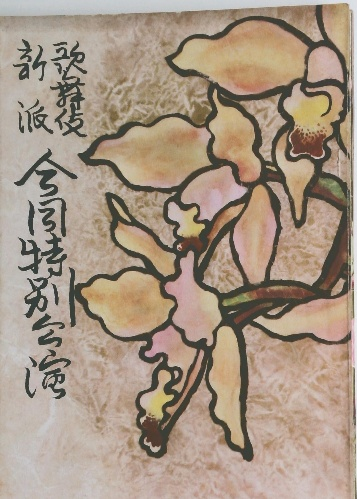 歌舞伎
新派
合同特別公演